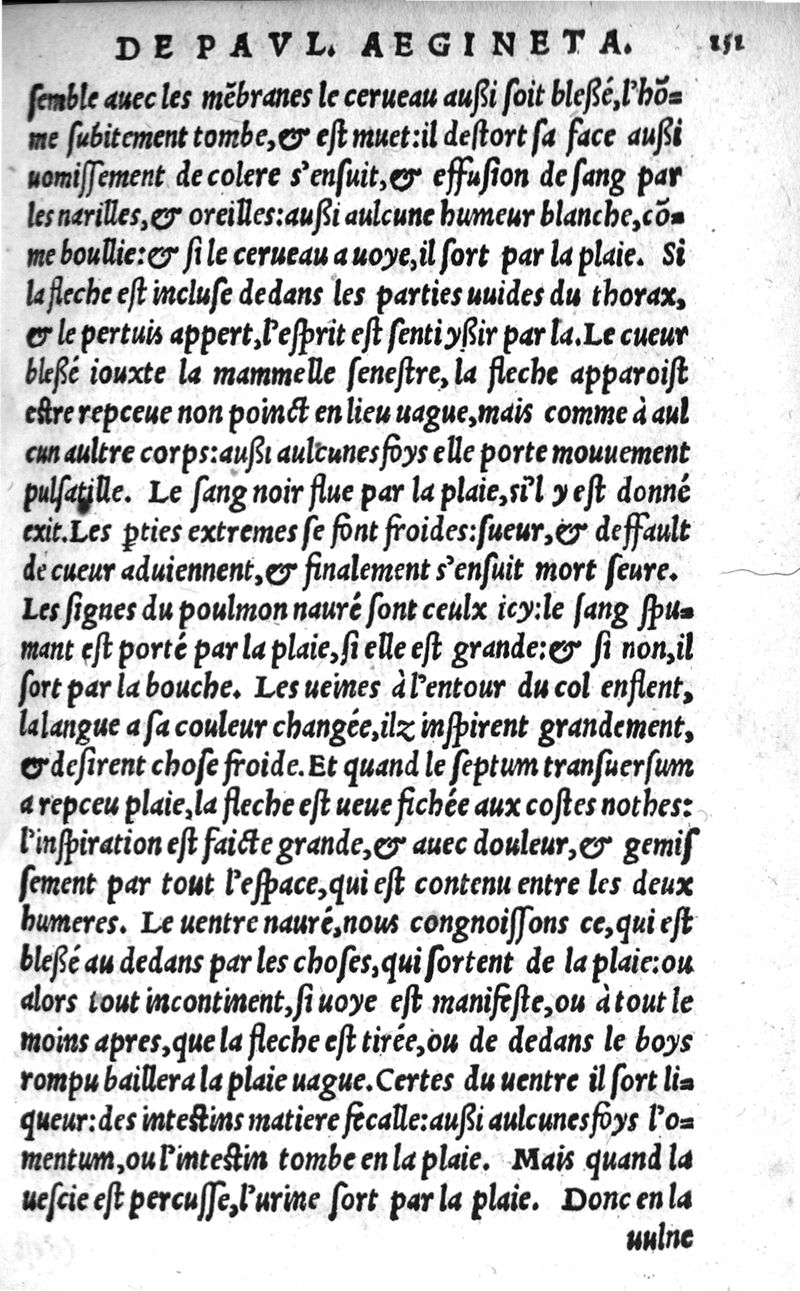 DE PAVL. AEGINETA. 151
ſemble auec les mẽbranes le cerueau auſſi ſoit bleßé, l'hõ=
me ſubitement tombe, & eſt muet: il deſtort ſa face auſſi
uomiſſement de colere s'enſuit, & effuſion de ſang par
les narilles, & oreilles: auſſi aulcune humeur blanche, cõ=
me boullie: & ſi le cerueau a uoye, il ſort par la plaie. Si
la fleche eſt incluſe dedans les parties uuides du thorax,
& le pertuis appert, l'eſprit eſt ſenti yßir par la. Le cueur
bleßé iouxte la mammelle ſeneſtre, la fleche apparoiſt
eſtre repceue non poinct en lieu uague, mais comme à aul
cun aultre corps: auſſi aulcunesfoys elle porte mouuement
pulſatille. Le ſang noir flue par la plaie, si'l y eſt donné
exit. Les ꝑties extremes ſe font froides: ſueur, & deffault
de cueur aduiennent, & finalement s'enſuit mort ſeure.
Les ſignes du poulmon nauré ſont ceulx icy: le ſang ſpu=
mant eſt porté par la plaie, ſi elle eſt grande: & ſi non, il
ſort par la bouche. Les ueines à l'entour du col enflent,
la langue a ſa couleur changée, ilz inſpirent grandement,
& deſirent choſe froide. Et quand le ſeptum tranſuerſum
a repceu plaie, la fleche eſt ueue fichée aux coſtes nothes:
l'inſpiration eſt faicte grande, & auec douleur, & gemiſ
ſement par tout l'eſpace, qui eſt contenu entre les deux
humeres. Le uentre nauré, nous congnoiſſons ce, qui eſt
bleßé au dedans par les choſes, qui ſortent de la plaie: ou
alors tout incontinent, ſi uoye eſt manifeſte, ou à tout le
moins apres, que la fleche eſt tirée, ou de dedans le boys
rompu baillera la plaie uague. Certes du uentre il ſort li=
queur: des inteſtins matiere fecalle: auſſi aulcunesfoys l'o=
mentum, ou l'inteſtin tombe en la plaie. Mais quand la
ueſcie eſt percuſſe, l'urine ſort par la plaie. Donc en la
uulne